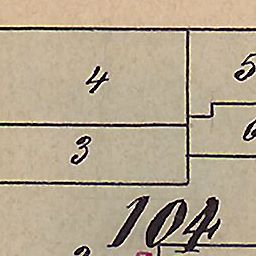 4
5
3
6
104